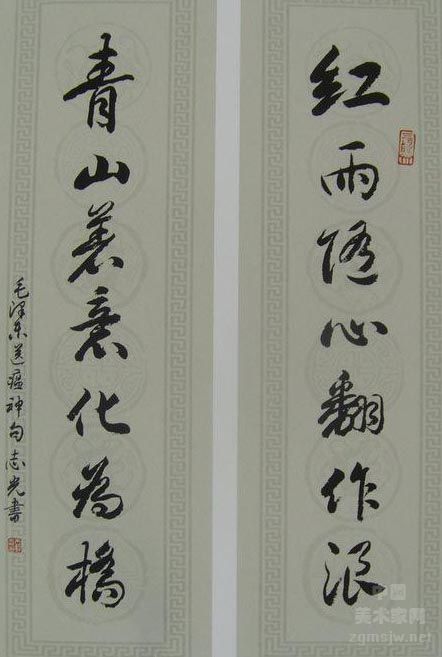 红雨随心翻作浪
青山着意化为桥
毛泽东送瘟神句志光书
中国
美术家网
zgmsjw.net